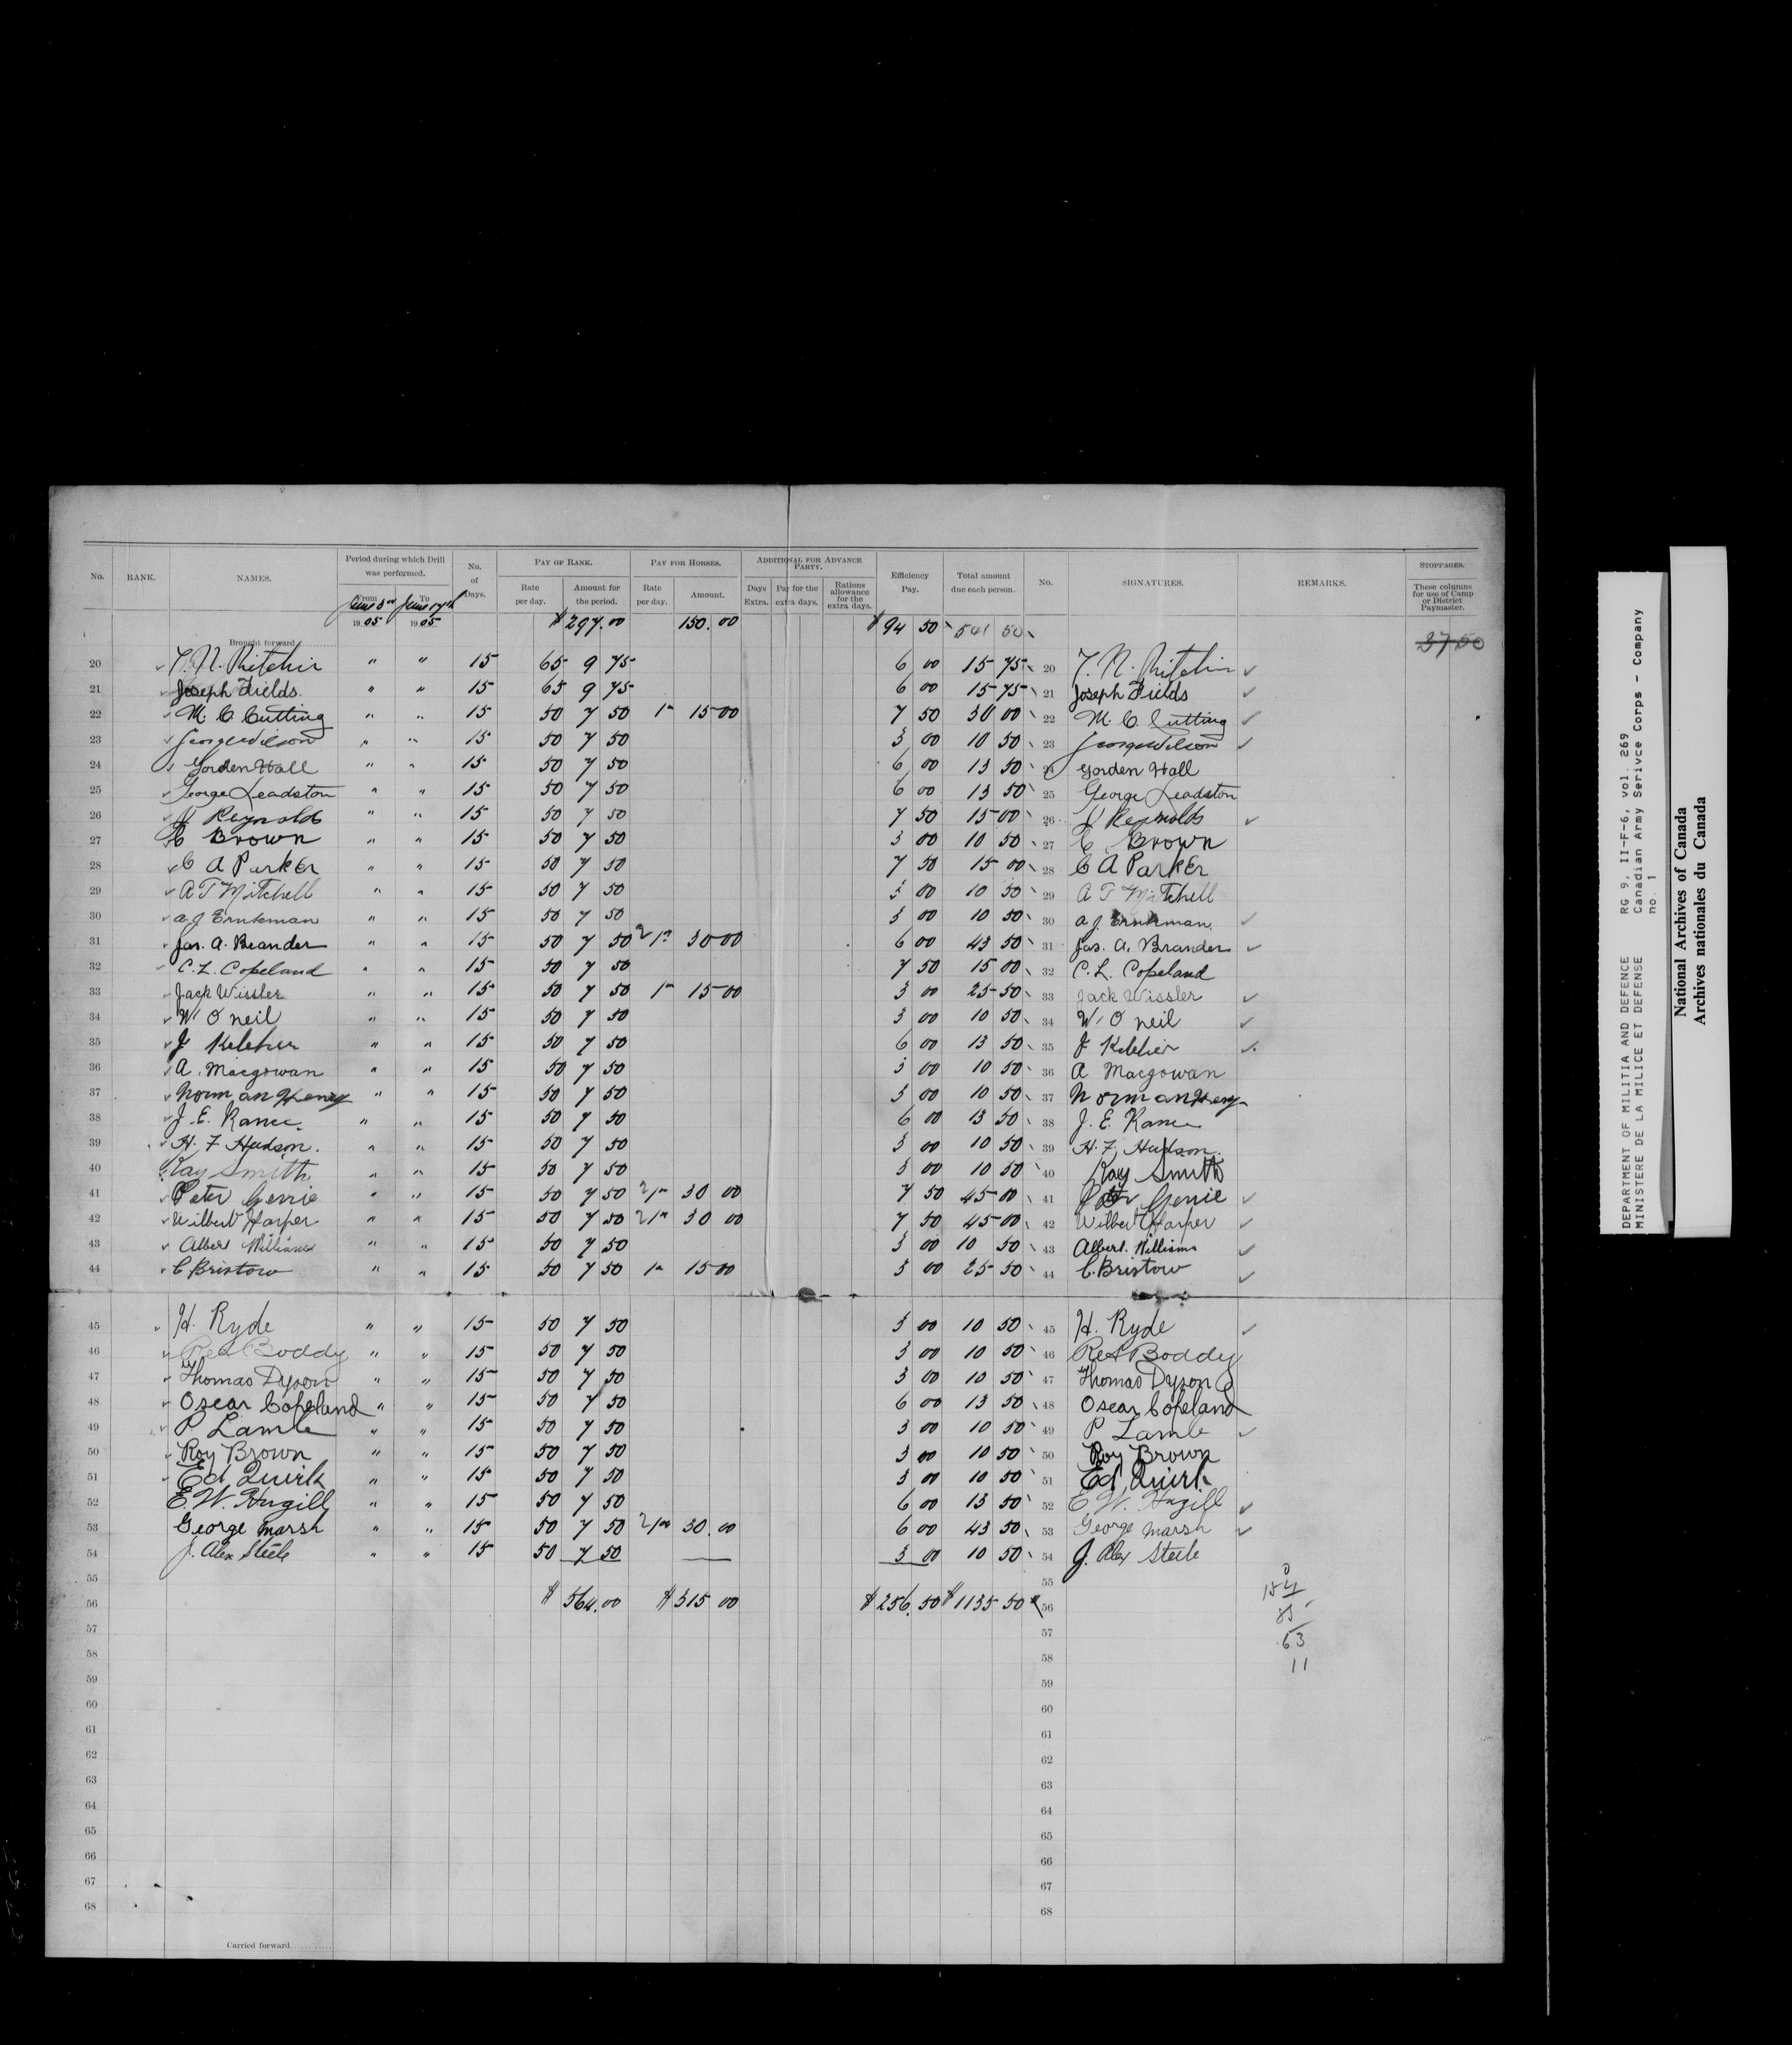 No. RANK. NAMES. Period during which Drill was performed. No. of Days. PAY OF RANK. PAY FOR HORSES. ADDITIONAL FOR ADVANCE PARTY. Efficiency Pay. Total amount due each person. No. SIGNATURES. REMARKS. STOPPAGES.
From To Rate per day. Amount for the period. Rate per day. Amount. Days Extra. Pay for the extra days. Rations allowance for the extra days. These columns for use of Camp or District Paymaster.
June 3rd June 17th
1905 1905 $297.00 150.00 $94 50 541 50 37.50
Brought forward
20 15 65 9 75 6 00 15 75 20
21 Joseph Fields. " " 15 65 9 75 6 00 15 75 21 Joseph Fields
22 M. C. Cutting " " 15 50 7 50 1 15 00 7 50 30 00 22 M. C. Cutting
23 George Wilson " " 15 50 7 50 3 00 10 50 23 George Wilson
24 Gorden Hall " " 15 50 7 50 6 00 13 50 24 Gorden Hall
25 George Leadston " " 15 50 7 50 6 00 13 50 25 George Leadston
26 J Reynolds " " 15 50 7 50 7 50 15 00 26 J Reynolds
27 C Brown " " 15 50 7 50 3 00 10 50 27 C Brown
28 C A Parker " " 15 50 7 50 7 50 15 00 28 C A Parker
29 A T Mitchell " " 15 50 7 50 3 00 10 50 29 A T Mitchell
30 A. J. " " 15 50 7 50 3 00 10 50 30 A. J.
31 Jas. A. Brander " " 15 50 7 50 2 1 30 00 6 00 43 50 31 Jas. A. Brander
32 C. L. Copeland " " 15 50 7 50 7 50 15 00 32 C. L. Copeland
33 Jack Wissler " " 15 50 7 50 1 15 00 3 00 25 50 33 Jack Wissler
34 W. O neil " " 15 50 7 50 3 00 10 50 34 W. O neil
35 J Kelcher " " 15 50 7 50 6 00 13 50 35 J Kelcher
36 A. Macgowan " " 15 50 7 50 3 00 10 50 36 A Macgowan
37 Norman Henry " " 15 50 7 50 3 00 10 50 37 Norman Henry
38 J. E. Rance " " 15 50 7 50 6 00 13 50 38 J. E. Rance
39 H. F. Hudson. " " 15 50 7 50 3 00 10 50 39 H. F. Hudson.
40 Ray Smith " " 15 50 7 50 3 00 10 50 40 Ray Smith
41 Peter Gerrie " " 15 50 7 50 2 1 30 00 7 50 45 00 41 Peter Gerrie
42 Wilbert Harper " " 15 50 7 50 2 1 30 00 7 50 45 00 42 Wilbert Harper
43 Albert Williams " " 15 50 7 50 3 00 10 50 43 Albert. Williams
44 C Bristow " " 15 50 7 50 1 15 00 3 00 25 50 44 C. Bristow
45 H. Ryde " " 15 50 7 50 3 00 10 50 45 H. Ryde
46 Boddy " " 15 50 7 50 3 00 10 50 46 Boddy
47 Thomas Dyson " " 15 50 7 50 3 00 10 50 47 Thomas Dyson
48 Oscar Copeland " " 15 50 7 50 6 00 13 50 48 Oscar Copeland
49 P Lamb " " 15 50 7 50 3 00 10 50 49 P Lamb
50 Roy Brown " " 15 50 7 50 3 00 10 50 50 Roy Brown
51 Ed Quirk " " 15 50 7 50 3 00 10 50 51 Ed Quirk
52 E. W. Hugill " " 15 50 7 50 6 00 13 50 52 E. W. Hugill
53 George Marsh " " 15 50 7 50 2 1 00 30.00 6 00 43 50 53 George Marsh
54 J. Alex Steele " " 15 50 7 50 3 00 10 50 54 J. Alex Steele
55 55
56 $564.00 $315 00 $256.50 $1135 50 56
57 57 63
58 58 11
59 59
60 60
61 61
62 62
63 63
64 64
65 65
66 66
67 67
68 68
Carried forward
DEPARTMENT OF MILITIA AND DEFENCE RG 9, II-F-6, vol. 269
MINISTERE DE LA MILICE ET DEFENSE Canadian Army Serivce Corps - Company
no. 1
National Archives of Canada
Archives nationales du Canada